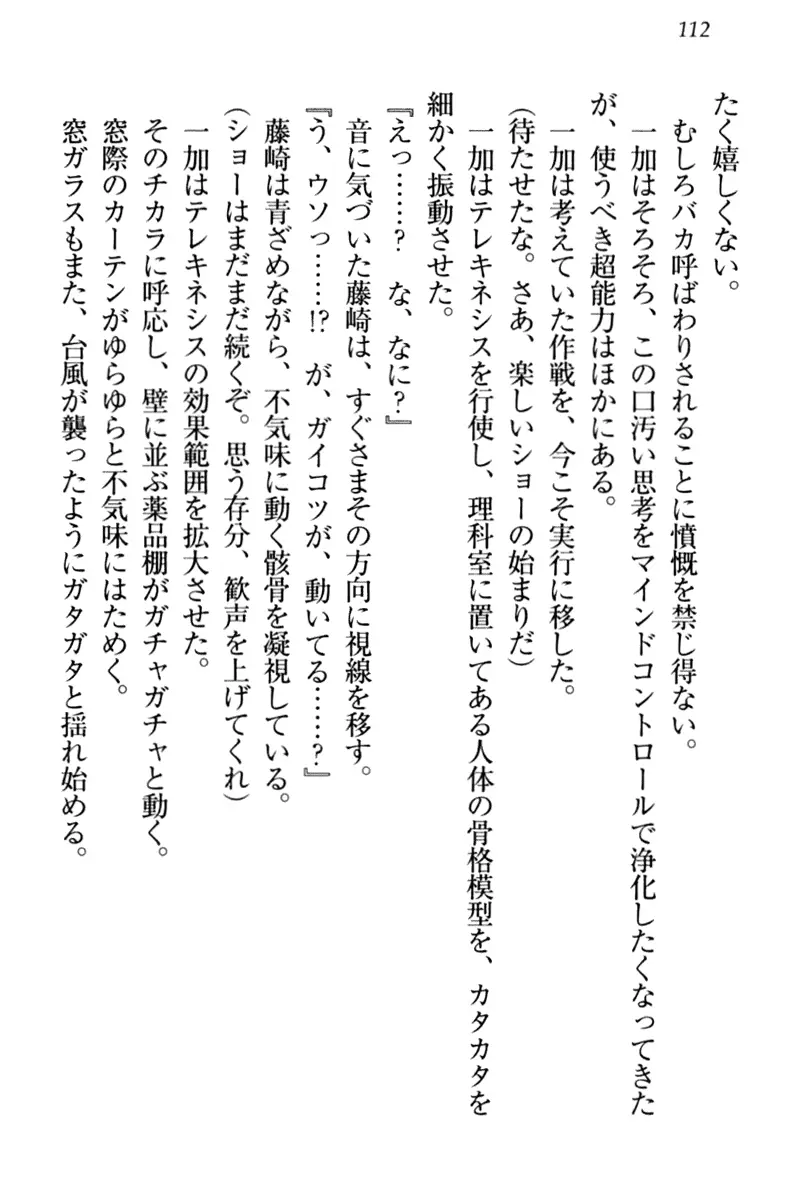 112
たく嬉しくない。
むしろバカ呼ばわりされることに憤慨を禁じ得ない。
一加はそろそろ、この口汚い思考をマインドコントロールで浄化したくなってきた
が、使うべき超能力はほかにある。
一加は考えていた作戦を、今こそ実行に移した。
(待たせたな。さあ、楽しいショーの始まりだ)
一加はテレキネシスを行使し、理科室に置いてある人体の骨格模型を、カタカタを
細かく振動させた。
『えっ……? な、なに?』
音に気づいた藤崎は、すぐさまその方向に視線を移す。
『う、ウソっ……!? が、ガイコツが、動いてる……?』
藤崎は青ざめながら、不気味に動く骸骨を凝視している。
(ショーはまだまだ続くぞ。思う存分、歓声を上げてくれ)
一加はテレキネシスの効果範囲を拡大させた。
そのチカラに呼応し、壁に並ぶ薬品棚がガチャガチャと動く。
窓際のカーテンがゆらゆらと不気味にはためく。
窓ガラスもまた、台風が襲ったようにガタガタと揺れ始める。